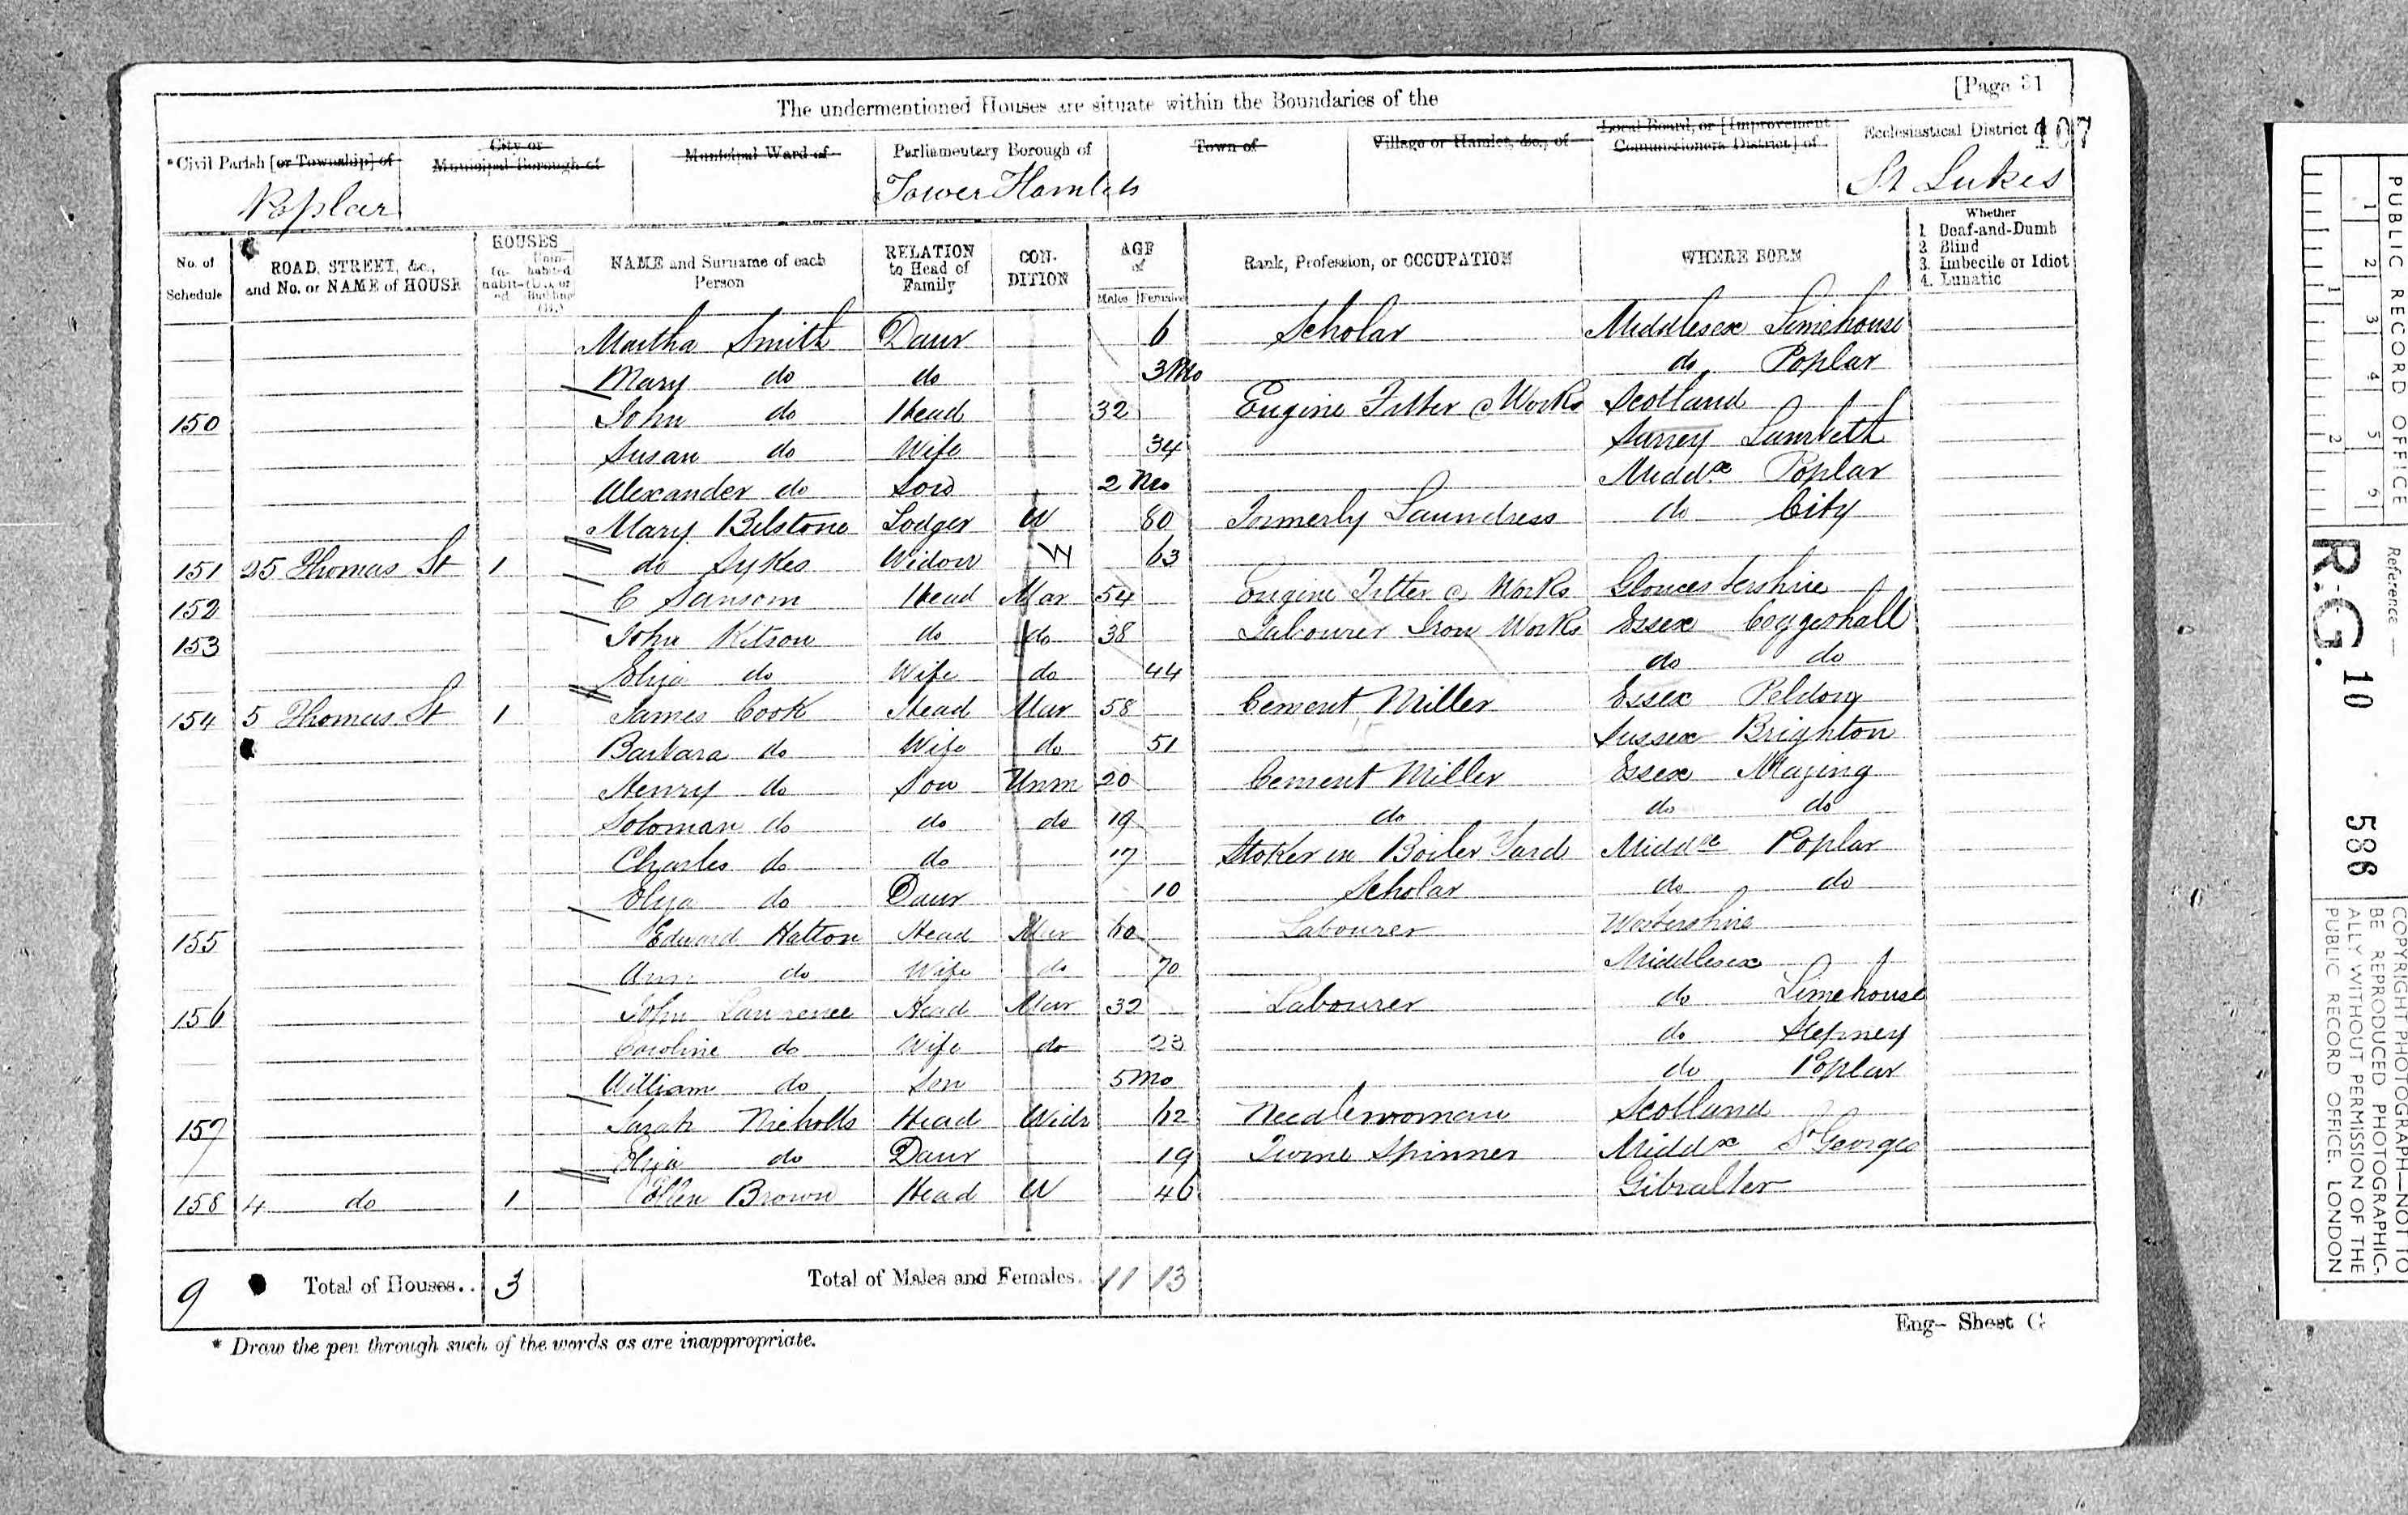 The undermentioned Houses are situate within the Boundaries of the [Page 31
107
*Civil Parish [or Township] of Poplar
City or Municipal Borough of
Municipal Ward of
Parliamentary Borough of Tower Hamlets
Town of
Village or Hamlet, &c., of
Local Board, or [Improvement Commissioners District] of
Ecclesiastical District of St Lukes
No. of Schedule
ROAD, STREET, &c., and No. or NAME of HOUSE
HOUSES
In-habit-ed
Unin-habited (U.), or Building (B.)
NAME and Surname of each Person
RELATION to Head of Family
CON-DITION
AGE of
Males Females
Rank, Profession, or OCCUPATION
WHERE BORN
Whether
1. Deaf-and-Dumb
2. Blind
3. Imbecile or Idiot
4. Lunatic
Martha Smith Daur 6 Scholar Middlesex Limehouse
Mary do do 3 Mo do Poplar
150 John do Head 32 Engine Fitter @ Works Scotland
Susan do Wife 34 Surrey Lambeth
Alexander do Son 2 Mo Middx Poplar
Mary Bilstone Lodger W 80 Formerly Laundress do City
151 25 Thomas St 1 do Sykes Widow W 63
152 C Sansom Head Mar 54 Engine Fitter @ Works Gloucestershire
153 John Kitson do do 38 Labourer Iron Works Essex Coggeshall
Eliza do Wife do 44 do do
154 5 Thomas St 1 James Cook Head Mar 58 Cement Miller Essex Peldon
Barbara do Wife do 51 Sussex Brighton
Henry do Son Unm 20 Cement Miller Essex Mazing
Soloman do do do 19 do do do
Charles do do 17 Stoker in Boiler Yard Middx Poplar
Eliza do Daur 10 Scholar do do
155 Edward Hatton Head Mar 60 Labourer
Ann do Wife do 70 Middlesex
156 John Lawrence Head Mar 32 Labourer do Limehouse
Caroline do Wife do 23 do Stepney
William do Son 5 Mo do Poplar
157 Sarah Nicholls Head Widr 62 Needlewoman Scotland
Eliza do Daur 19 Twine Spinner Middx St Georges
158 4 do 1 Ellen Brown Head W 46 Gibralter
9 Total of Houses.. 3 Total of Males and Females.. 11 13
* Draw the pen through such of the words as are inappropriate.
Eng- Sheet G
PUBLIC RECORD OFFICE
1 2 3 4 5 6
1 2
Reference —
R.G. 10 586
COPYRIGHT PHOTOGRAPH—NOT TO
BE REPRODUCED PHOTOGRAPHIC-
ALLY WITHOUT PERMISSION OF THE
PUBLIC RECORD OFFICE. LONDON